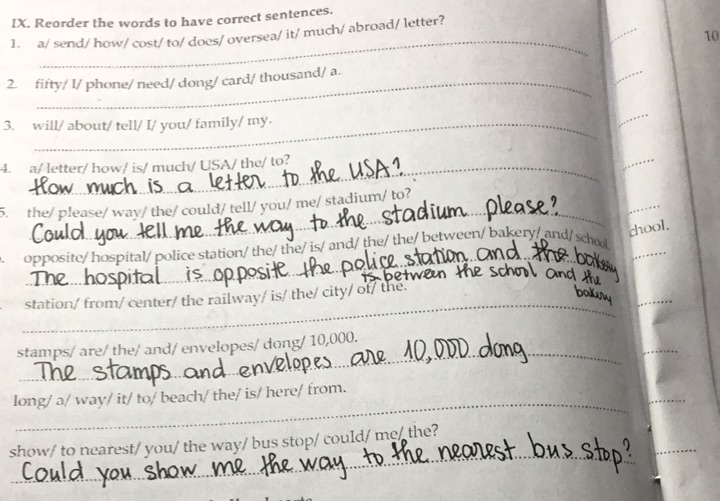 IX. Reorder the words to have correct sentences.
1. a/ send/ how/ cost/ to/ does/ oversea/ it/ much/ abroad/ letter?
10
2. fifty/ I/ phone/ need/ dong/ card/ thousand/ a.
3. will/ about/ tell/ I/ you/ family/ my.
4. a/ letter/ how/ is/ much/ USA/ the/ to?
How much is a letter to the USA?
5. the/ please/ way/ the/ could/ tell/ you/ me/ stadium/ to?
Could you tell me the way to the stadium please?
opposite/ hospital/ police station/ the/ the/ is/ and/ the/ the/ between/ bakery/ and/ school
chool.
The hospital is opposite the police station and the bakery
is between the school and the
bakery
station/ from/ center/ the railway/ is/ the/ city/ of/ the.
stamps/ are/ the/ and/ envelopes/ dong/ 10,000.
The stamps and envelopes are 10,000 dong
long/ a/ way/ it/ to/ beach/ the/ is/ here/ from.
show/ to nearest/ you/ the way/ bus stop/ could/ me/ the?
Could you show me the way to the nearest bus stop?